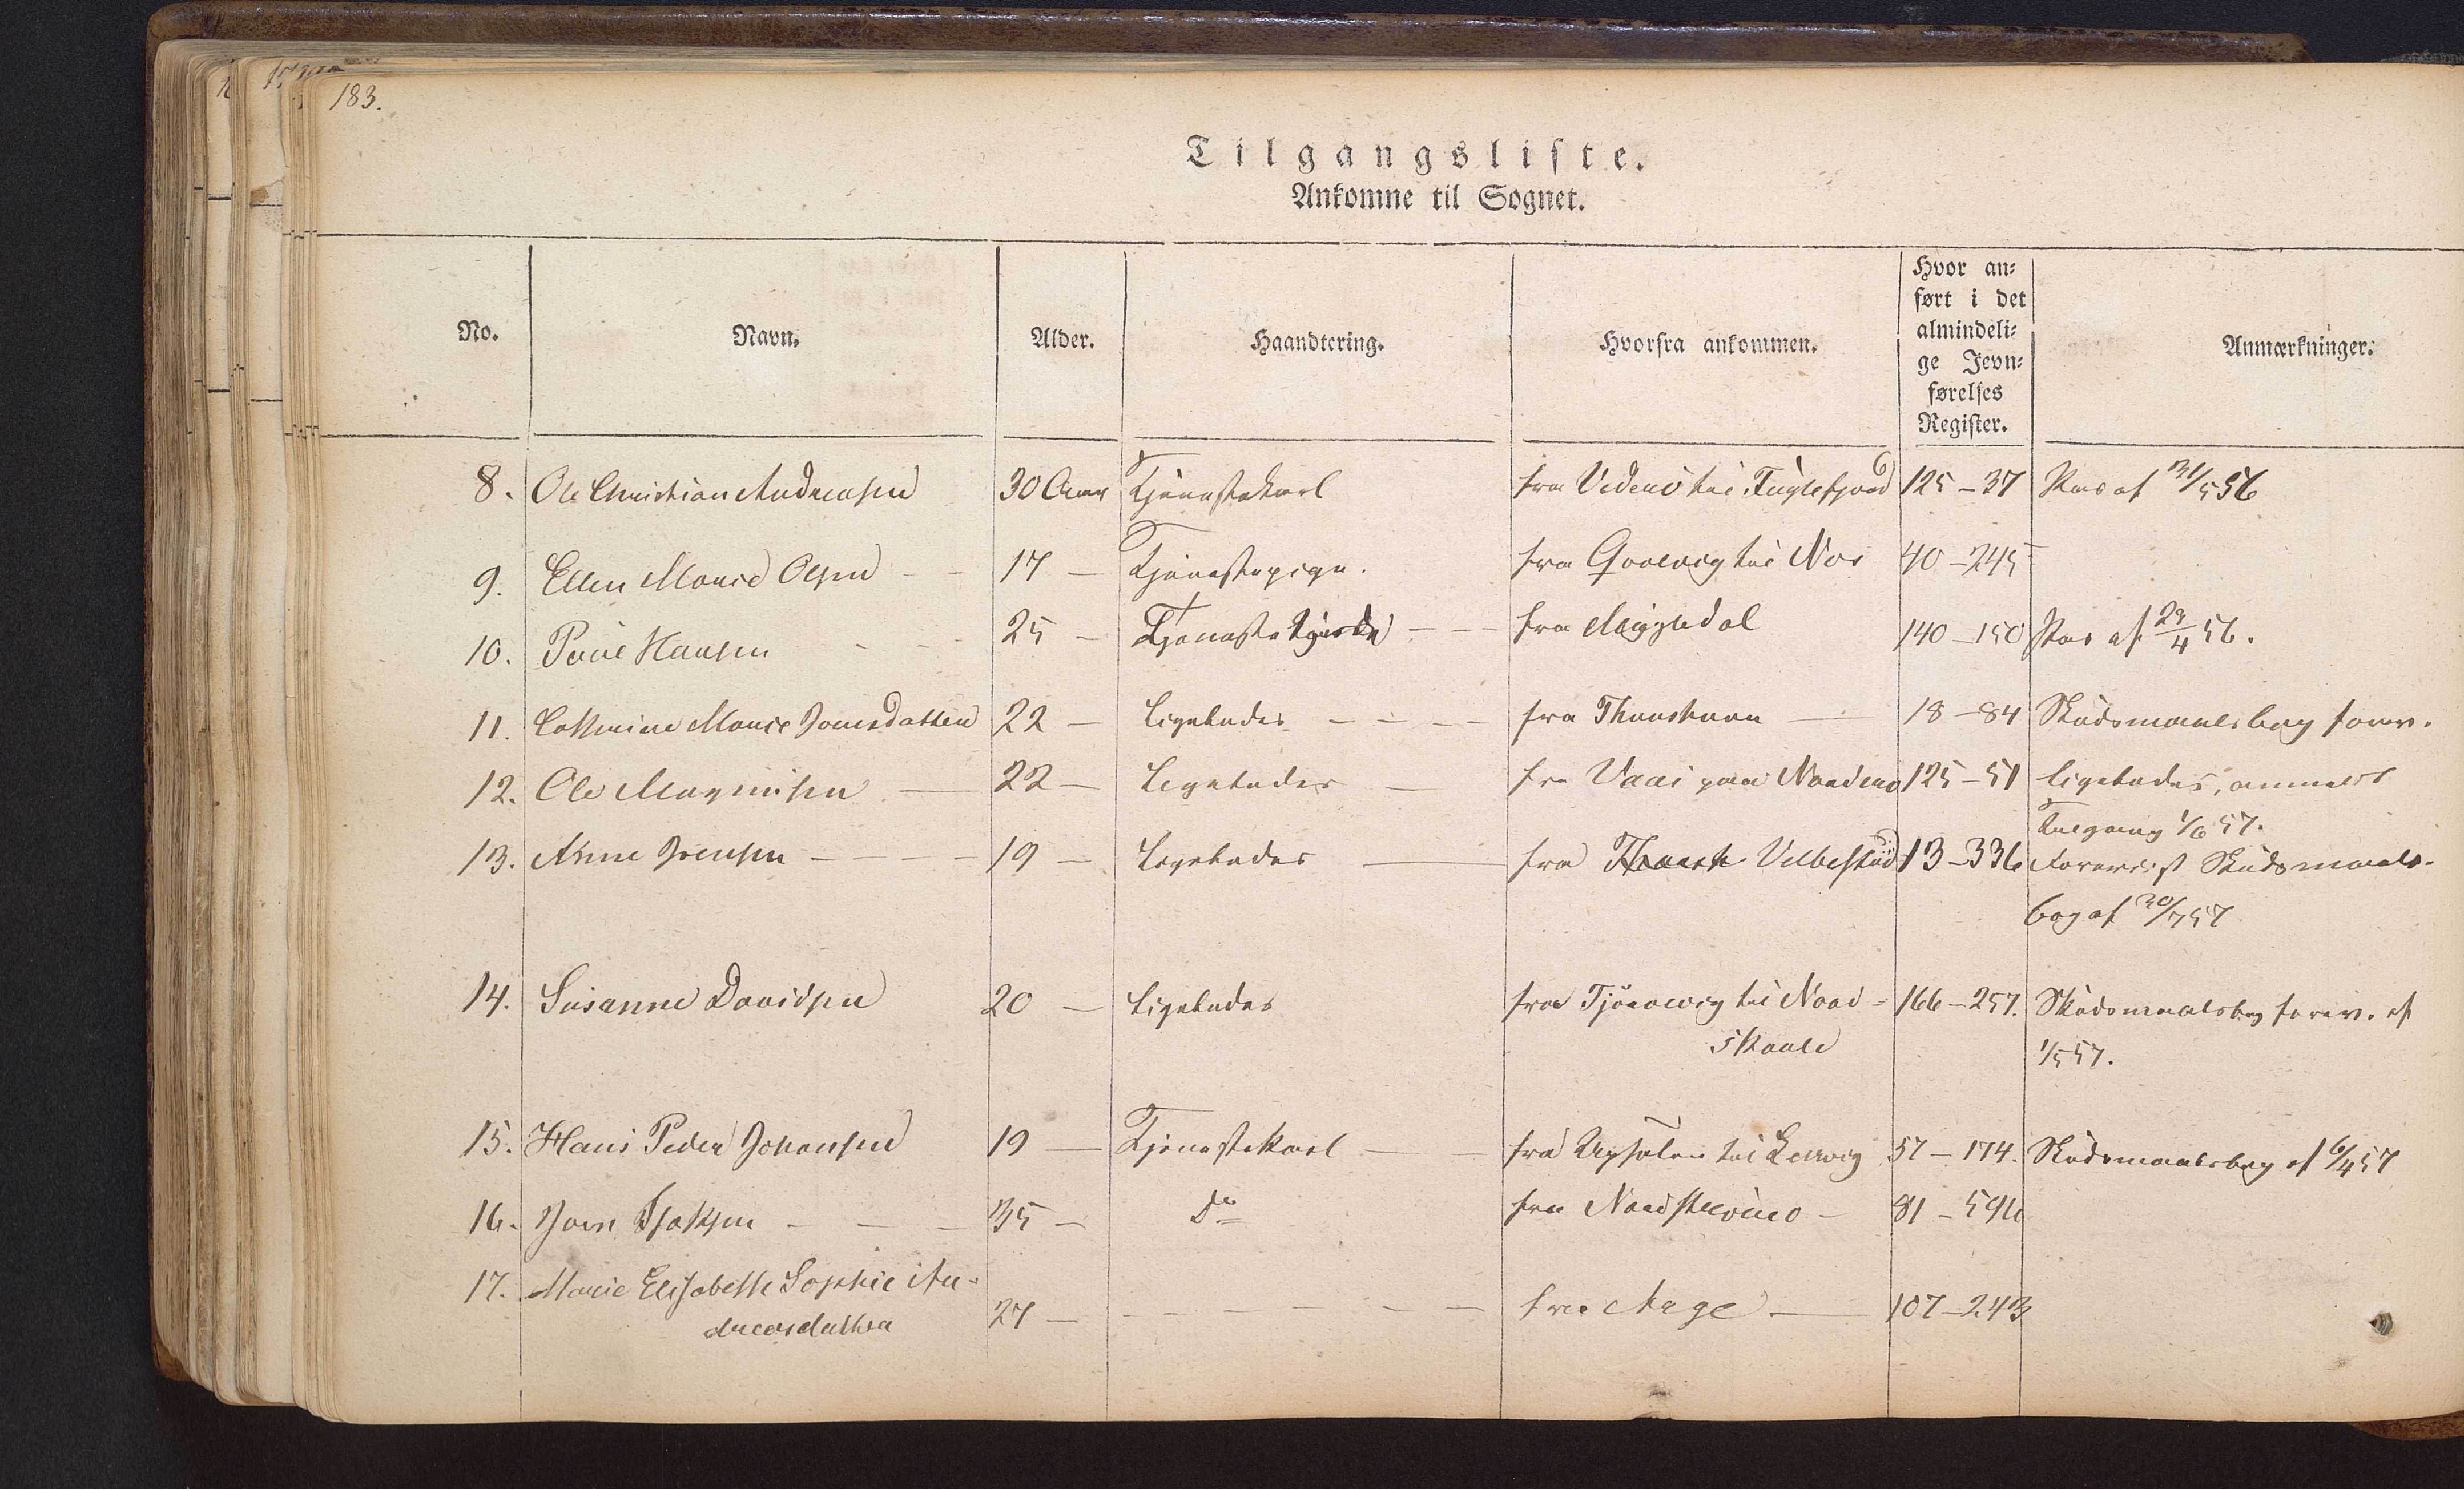 183.
Tilgangsliste.
Ankomne til Sognet.
No. Navn. Alder. Haandtering. Hvorfra ankommen. Hvor an= Anmærkninger.
ført i det
almindeli=
ge Jevn=
førelses
Register.
8. Ole Christian Andreasen 30 Aar Tjenestekarl fra Viderö til Fuglefjord 125-37 Pas af 31/5 56
9. Ellen Marie Olsen 17 - Tjenestepige. fra til Nor 40-245
10. Poul Hansen 25 - Tjeneste fra Myggedal 140-150 Pas af 29/4 56.
11. Cathrine Marie Joensdatter 22 - Ligeledes fra Thorshavn 18-84 Skudsmaalsbog forev.
12. Ole Magnusen 22 - Ligeledes fra Vaai paa Norderö 125-51 ligeledes, anmeldt
Tilgang 1/6 57.
13. Anne Joensen 19 - Ligeledes fra Velbestad 13-336 Forevist Skudsmaals-
bog af 30/7 57
14. Susanne Davidsen 20 - Ligeledes fra Tjörnevig til Nord- 166-257. Skudsmaalsbog forev. af
skaale 1/5 57.
15. Hans Peder Johansen 19 - Tjenestekarl fra til Lervig 57-174. Skudsmaalsbog af 6/4 57
16. Joen Isaksen 35 - Do fra Nordströmö 81-596
17. Marie Elisabeth Sophie An-
dreasdatter 27 - fra Arge 107-243